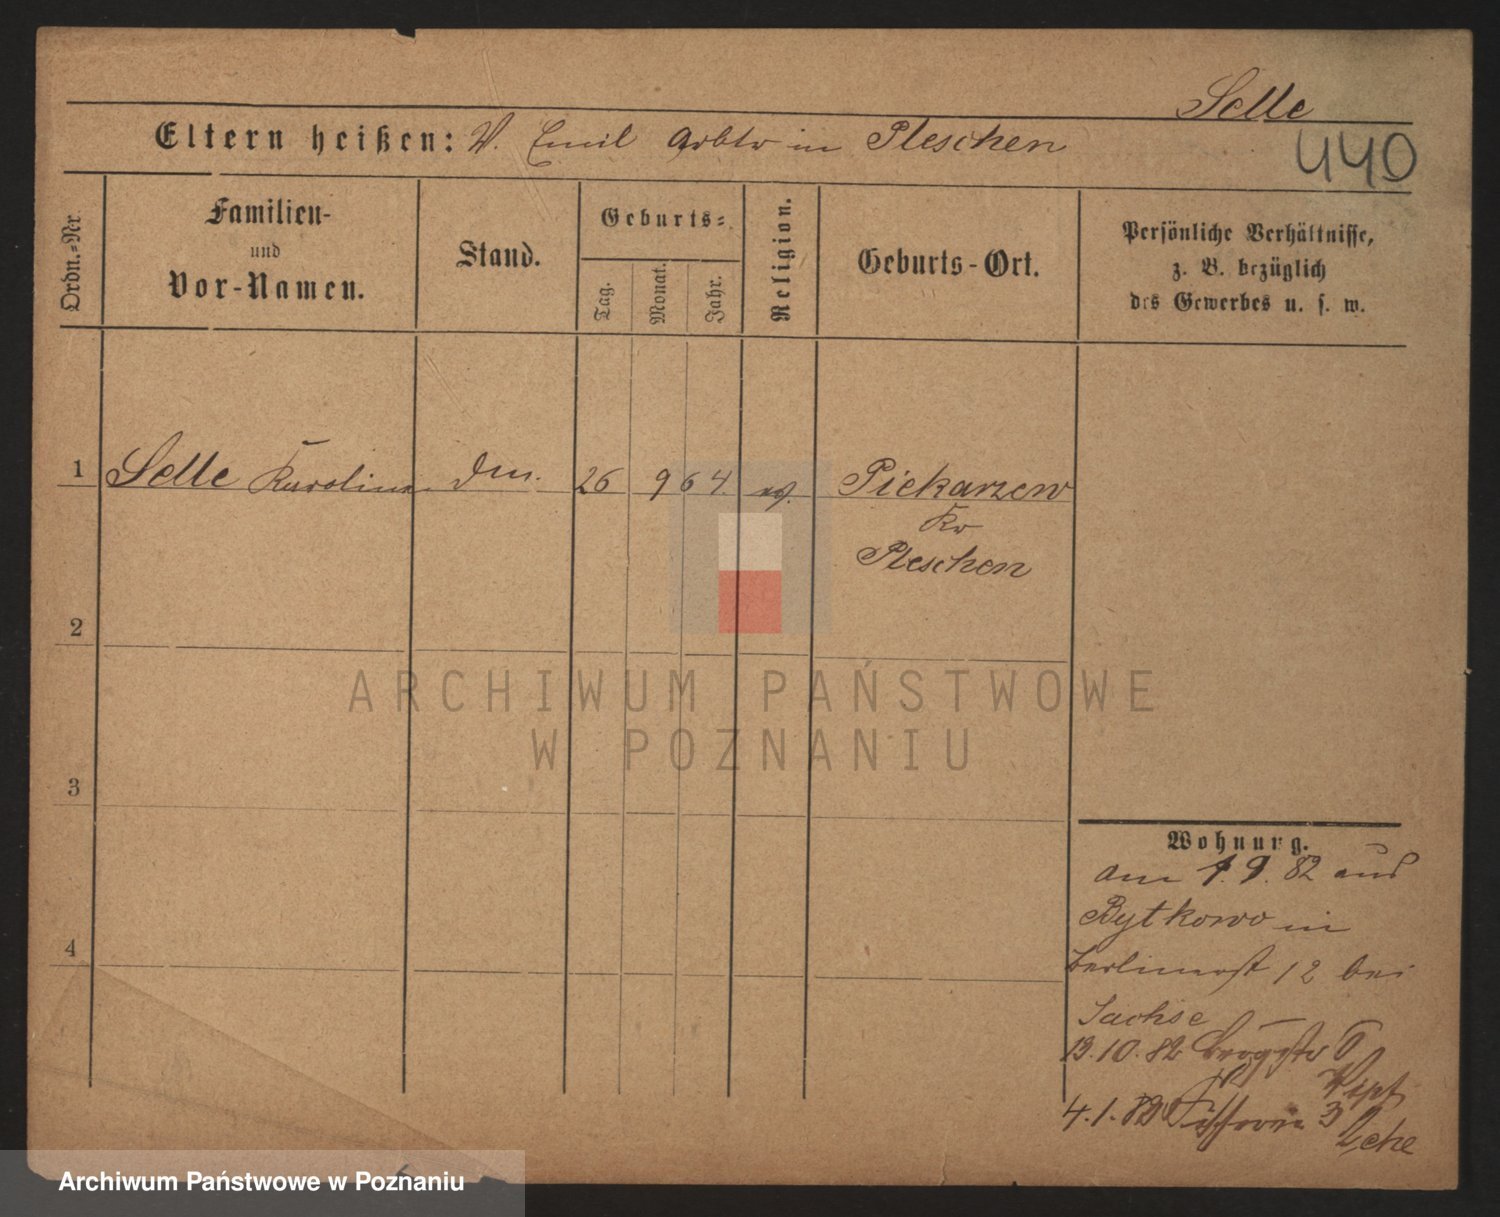 Selle
Eltern heißen: V. Emil Arbtr in Pleschen
440
Ordn.-Nr.
Familien-
und
Vor-Namen.
Stand.
Geburts-
Tag.
Monat.
Jahr.
Religion.
Geburts-Ort.
Persönliche Verhältnisse,
z. B. bezüglich
des Gewerbes u. s. w.
1 Selle Karoline 26 9 64. ev. Piekarzew
Kr
Pleschen
2
3
4
Wohnung.
am 1.9.82 aus
Bytkowo in
Berlinerst 12 bei
Sachse
13.10.82
4.1.82 3
ARCHIWUM PAŃSTWOWE
W POZNANIU
Archiwum Państwowe w Poznaniu